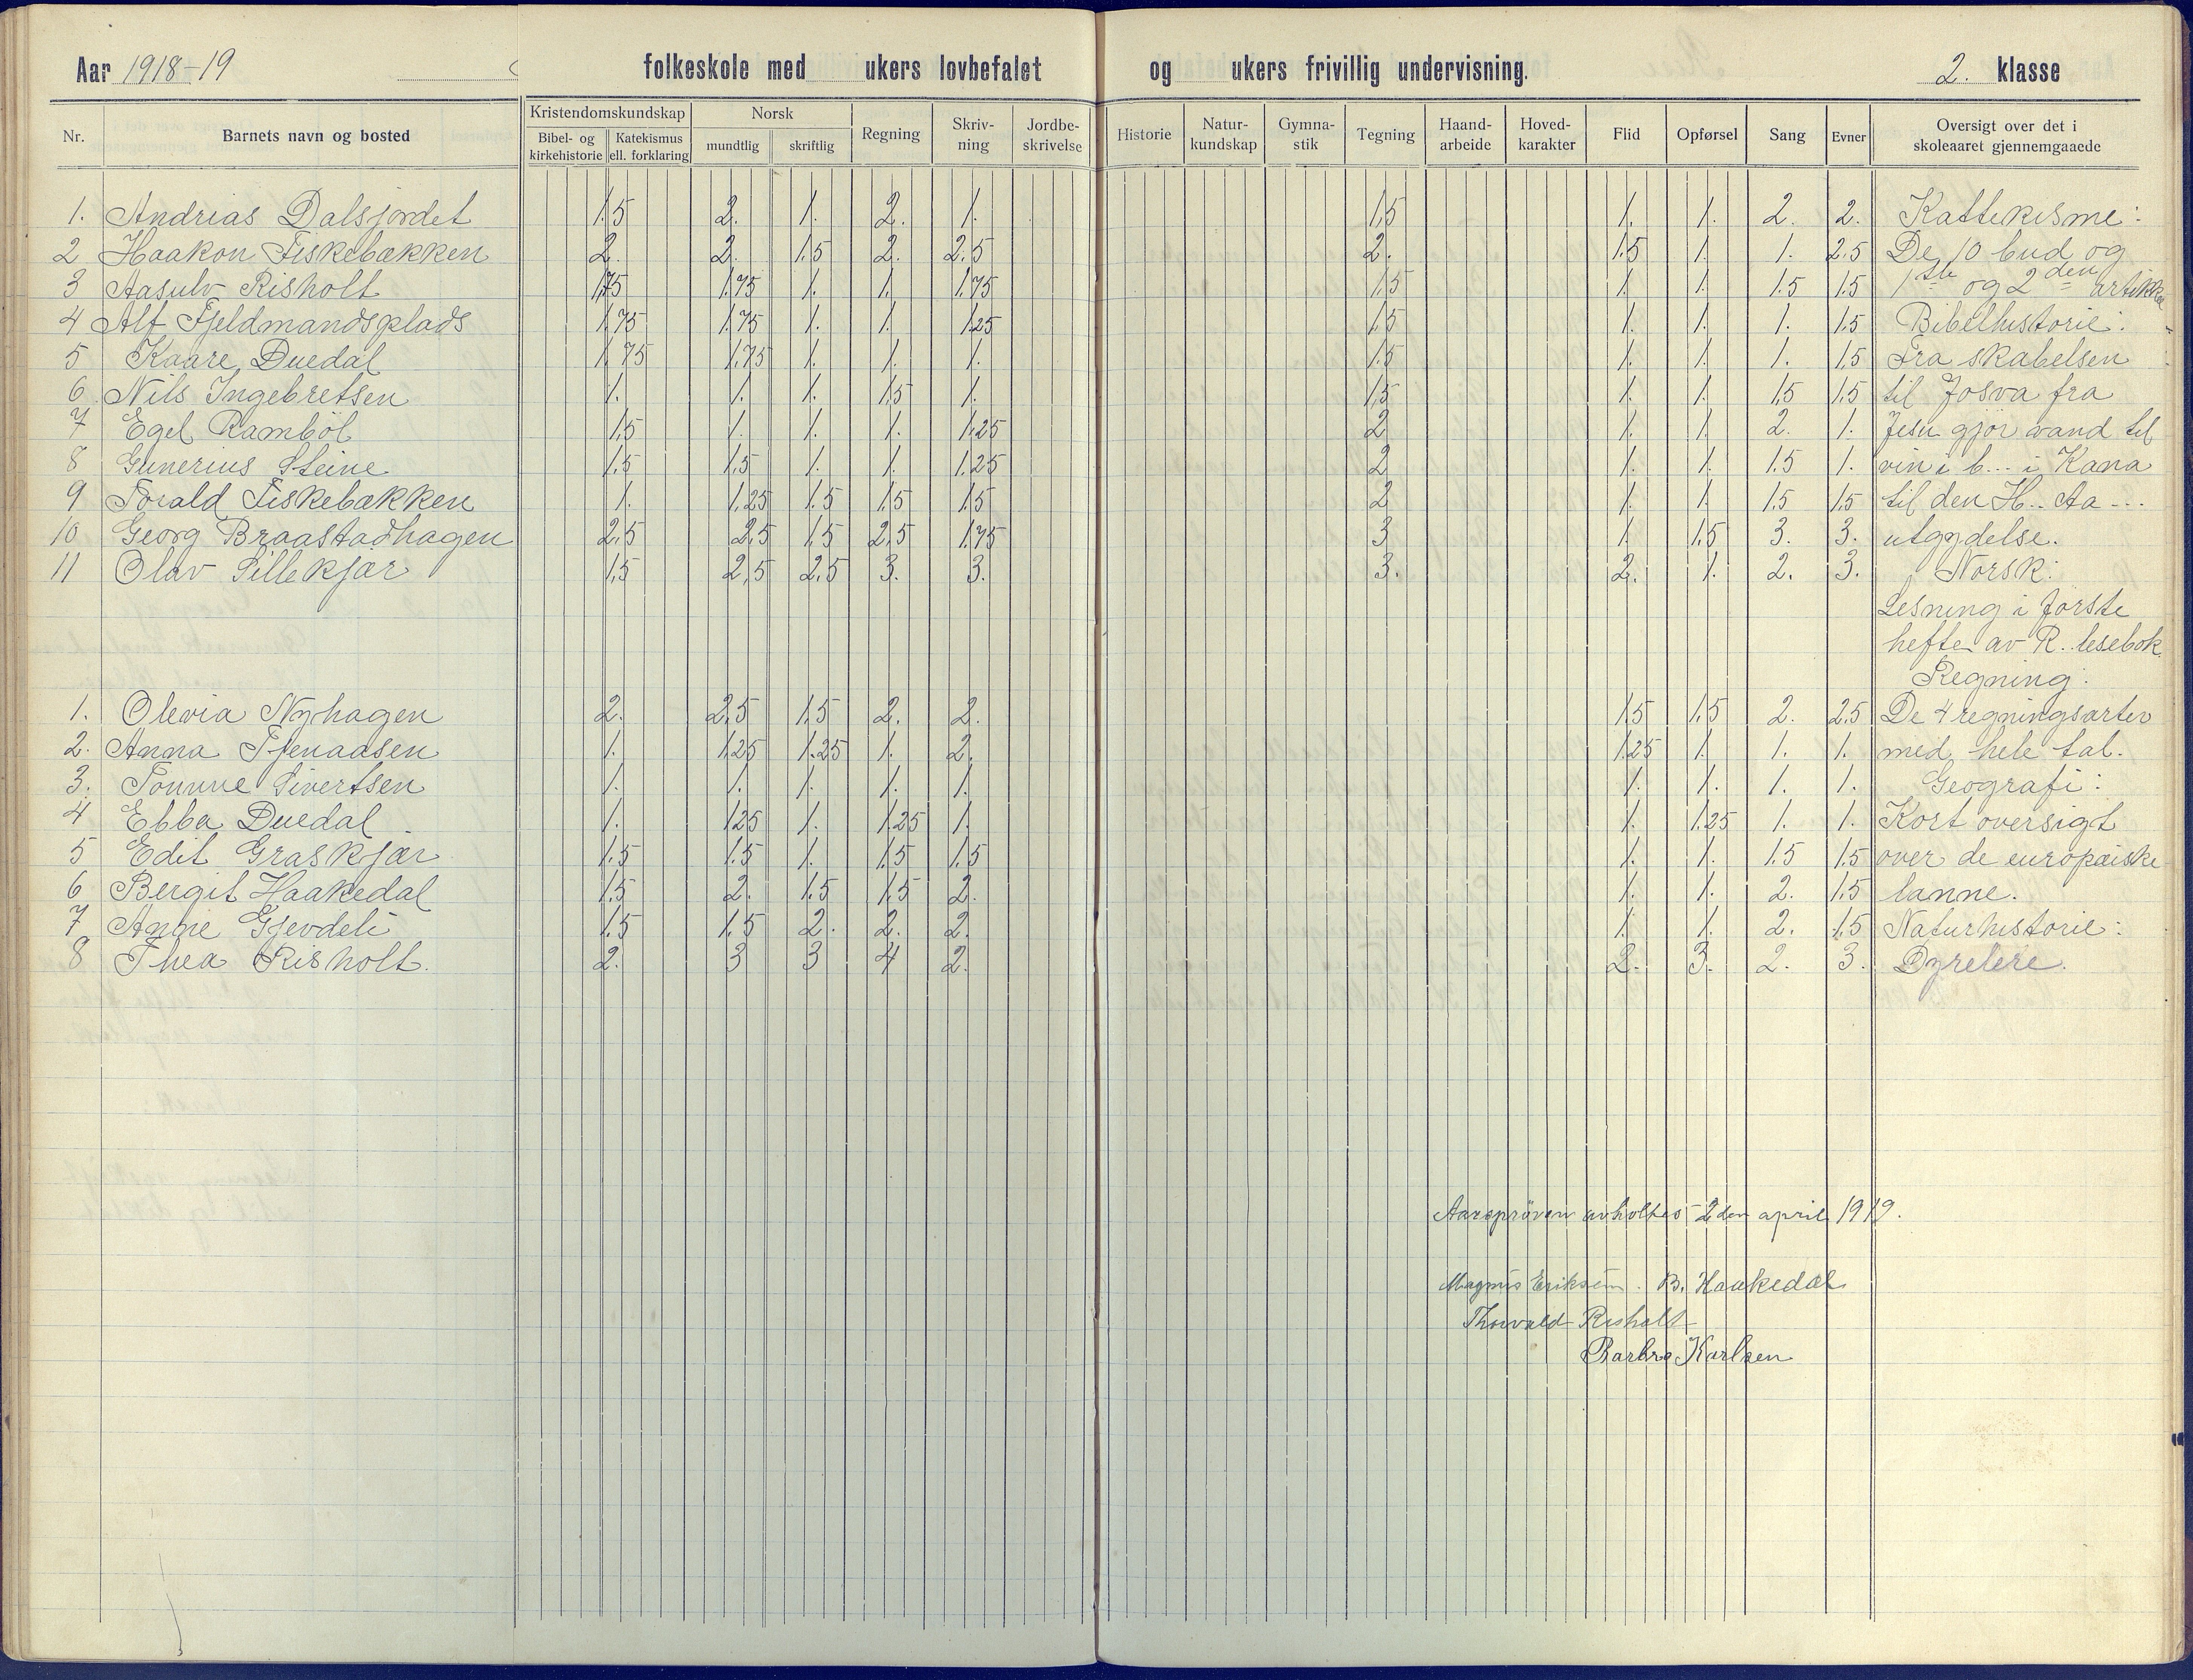 Aar 1918-19 folkeskole med ukers lovbefalet og ukers frivillig undervisning. 2. klasse
Nr. Barnets navn og bosted Kristendomskundskap Bibel- og kirkehistorie Katekismus ell. forklaring Norsk mundtlig skriftlig Regning Skriv-ning Jordbe-skrivelse Historie Natur-kundskap Gymna-stik Tegning Haand-arbeide Hoved-karakter Flid Opførsel Sang Evner Oversigt over det i skoleaaret gjennemgaaede
1. Andrias Dalsjordet 1.5 2. 1. 2. 1. 1.5 1. 1. 2. 2. Kattekisme:
2 Haakon Fiskebækken 2. 2. 1.5 2. 2.5 2. 1.5 1. 1. 2.5 De 10 bud og
3 Aasulv Risholt 1.75 1.75 1. 1. 1.75 1.5 1. 1. 1.5 1.5 1ste og 2den artikkel
4 Alf Fjeldmandsplads 1.75 1.75 1. 1. 1.25 1.5 1. 1. 1. 1.5 Bibelhistorie:
5 Kaare Duedal 1.75 1.75 1. 1. 1. 1.5 1. 1. 1. 1.5 Fra skabelsen
6. Nils Ingebretsen 1. 1. 1. 1.5 1. 1.5 1. 1. 1.5 1.5 til Josva fra
7 Egel Ramböl 1.5 1. 1. 1. 1.25 2 1. 1. 2. 1. Jesu gjör vand til
8 Gunerius Steine 1.5 1.5 1. 1. 1.25 2 1. 1. 1.5 1. vin i b... i Kana
9 Torald Fiskebækken 1. 1.25 1.5 1.5 1.5 2 1. 1. 1.5 1.5 til den H.. Aa ---
10 Georg Braastadhagen 2.5 2.5 1.5 2.5 1.75 3 1. 1.5 3. 3. utgydelse.
11 Olav Sillekjær 1.5 2.5 2.5 3. 3. 3. 2. 1. 2. 3. Norsk:
Lesning i förste
hefte av R. lesebok.
Regning:
1. Olevia Nyhagen 2. 2.5 1.5 2. 2. 1.5 1.5 2. 2.5 De 4 regningsarter
2. Anna Tjenaasen 1. 1.25 1.25 1. 2. 1.25 1. 1. 1. med hele tal.
3. Tomine Sivertsen 1. 1. 1. 1. 1. 1. 1. 1. 1. Geografi:
4 Ebba Duedal 1. 1.25 1. 1.25 1. 1. 1.25 1. 1. Kort oversigt
5 Edit Graskjær 1.5 1.5 1. 1.5 1.5 1. 1. 1.5 1.5 over de europæiske
6 Bergit Haakedal 1.5 2. 1.5 1.5 2. 1. 1. 2. 1.5 lanne.
7 Anne Gjevdeli 1.5 1.5 2. 2. 2. 1. 1. 2. 1.5 Naturhistorie:
8 Thea Risholt. 2. 3 3 4 2. 2. 3. 2. 3. Dyrelere.
Aarsprøven avholtes 2den april 1919.
Magnus Eriksen. B. Haakedal
Thorvald Risholt
Barbro Karlsen